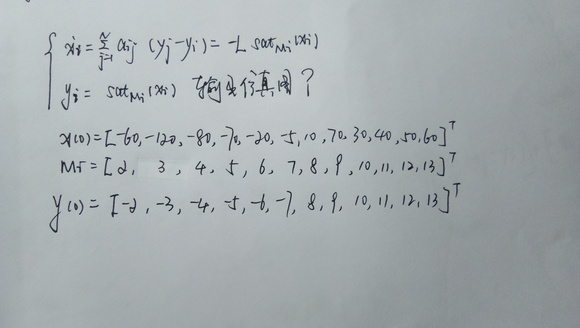 { ẋi = Σ_{j=1}^{N} aij (yj - yi) = -L sat_{Mi}(xi)
yi = sat_{Mi}(xi) 如何画仿真图?
x(0) = [-60, -120, -80, -70, -20, -5, 10, 70, 30, 40, 50, 60]^T
Mi = [2, 3, 4, 5, 6, 7, 8, 9, 10, 11, 12, 13]^T
y(0) = [-2, -3, -4, -5, -6, -7, 8, 9, 10, 11, 12, 13]^T